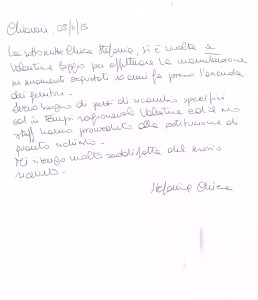 Chiavari, 05/11/15
La sottoscritta Chiesa Stefania, si è rivolta a
Valentina Saggio per effettuare la manutenzione
su serramenti acquistati 10 anni fa presso l'azienda
dei fratelli.
Avevo bisogno di pezzi di ricambio specifici
ed in tempi ragionevoli Valentina ed il suo
staff hanno provveduto alla sostituzione di
quanto richiesto.
Mi ritengo molto soddisfatta del servizio
ricevuto.
Stefania Chiesa